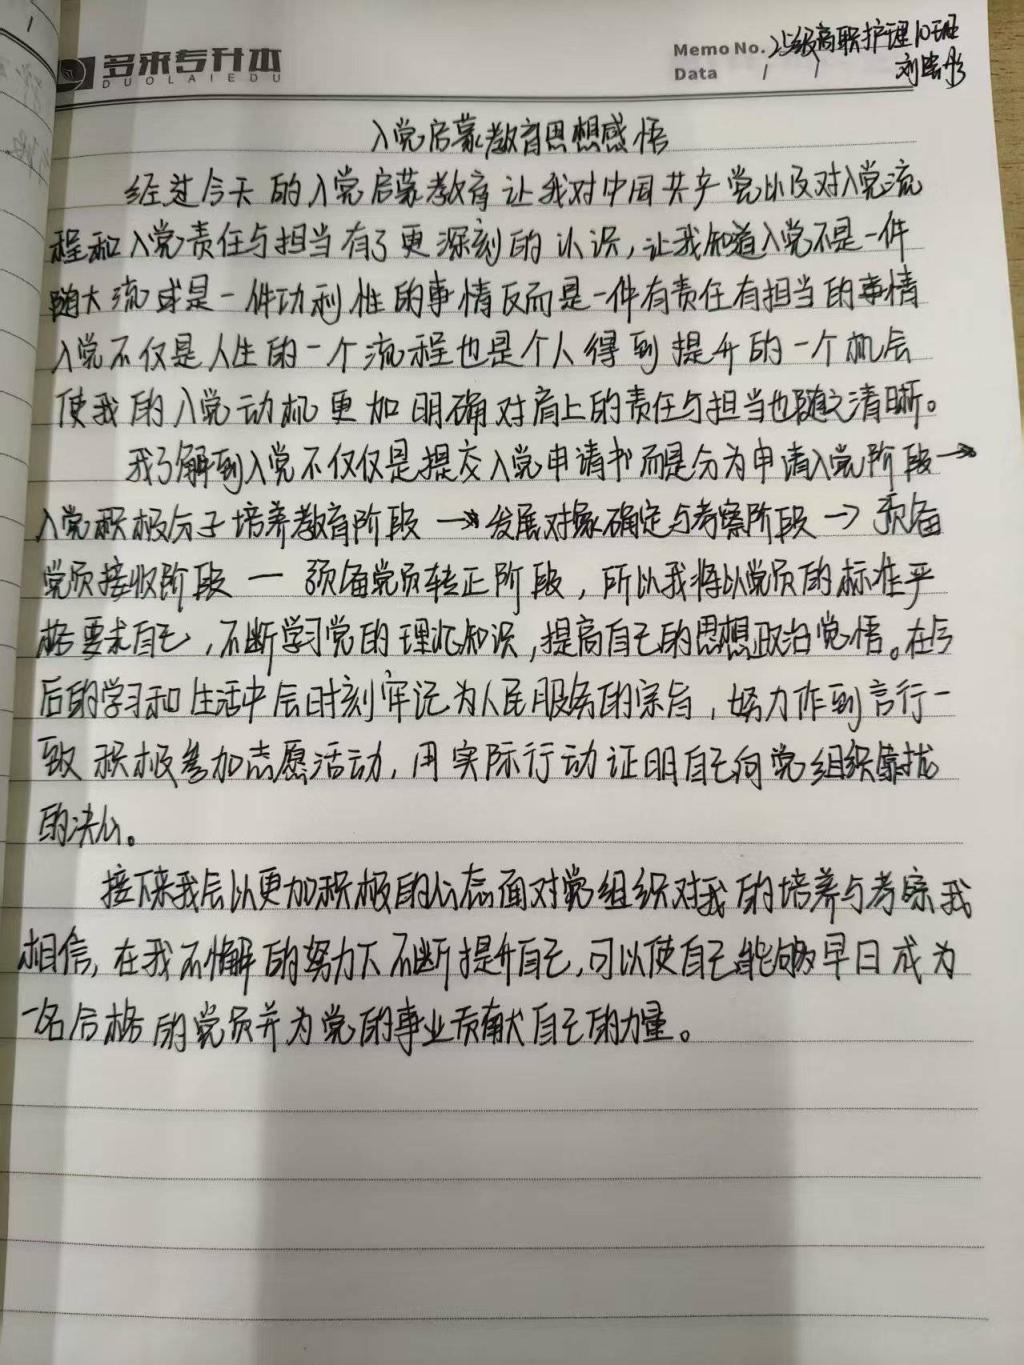 多来专升本
DUOLAIEDU
Memo No. 25级高职护理10班
Data / /
入党启蒙教育思想感悟
经过今天的入党启蒙教育让我对中国共产党以及对入党流
程和入党责任与担当有了更深刻的认识,让我知道入党不是一件
随大流或是一件功利性的事情反而是一件有责任有担当的事情
入党不仅是人生的一个流程也是个人得到提升的一个机会
使我的入党动机更加明确对肩上的责任与担当也随之清晰。
我了解到入党不仅仅是提交入党申请书而是分为申请入党阶段→
入党积极分子培养教育阶段→发展对象确定与考察阶段→预备
党员接收阶段—预备党员转正阶段,所以我将以党员的标准严
格要求自己,不断学习党的理论知识,提高自己的思想政治觉悟。在今
后的学习和生活中会时刻牢记为人民服务的宗旨,努力作到言行一
致积极参加志愿活动,用实际行动证明自己向党组织靠拢
的决心。
接下来我会以更加积极的心态面对党组织对我的培养与考察我
相信,在我不懈的努力下不断提升自己,可以使自己能够早日成为
一名合格的党员并为党的事业贡献自己的力量。